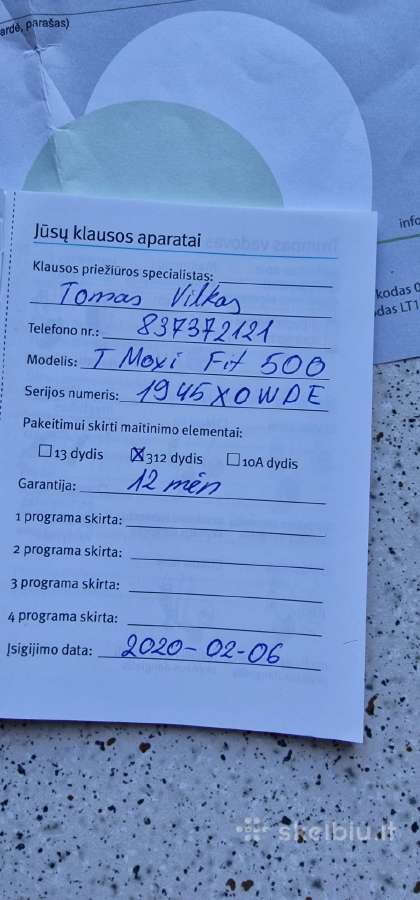 ardė, parašas)
info
kodas 0
das LT1
Jūsų klausos aparatai
Klausos priežiūros specialistas:
Tomas Vilkas
Telefono nr.: 837372121
Modelis: T Moxi Fit 500
Serijos numeris: 1945X0WDE
Pakeitimui skirti maitinimo elementai:
13 dydis 312 dydis 10A dydis
Garantija: 12 mėn
1 programa skirta:
2 programa skirta:
3 programa skirta:
4 programa skirta:
Įsigijimo data: 2020-02-06
skelbiu.lt